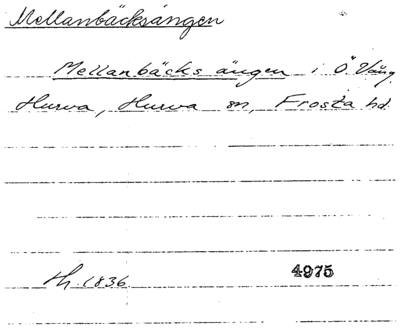 Mellanbäcksängen
Mellanbäcks ängen i Ö. Vång
Hurva, Hurva sn, Frosta hd.
Th. 1836 4975